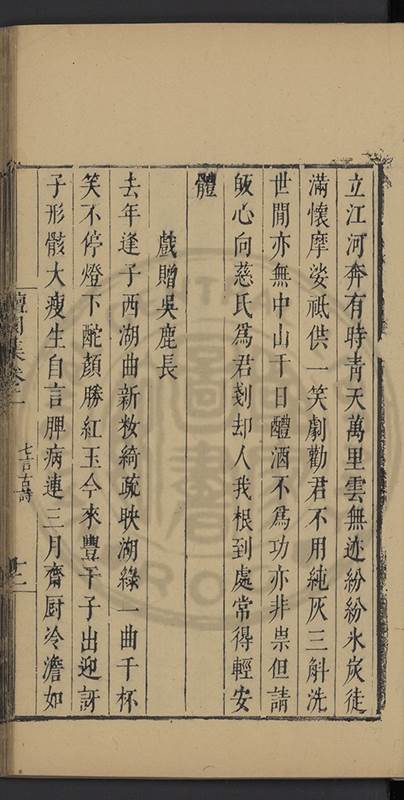 立江河奔有時青天萬里雲無迹紛紛氷炭徒
滿懷摩娑祇供一笑劇勸君不用純灰三斛洗
世間亦無中山千日醴酒不爲功亦非祟但請
皈心向慈氏爲君剗却人我根到處常得輕安
體
戲贈吳鹿長
去年逢子西湖曲新妝綺疏映湖綠一曲千杯
笑不停燈下酡顏勝紅玉今來豐干子出迎訝
子形骸大瘦生自言脾病連三月齋厨冷澹如
集卷二
七言古詩
十二